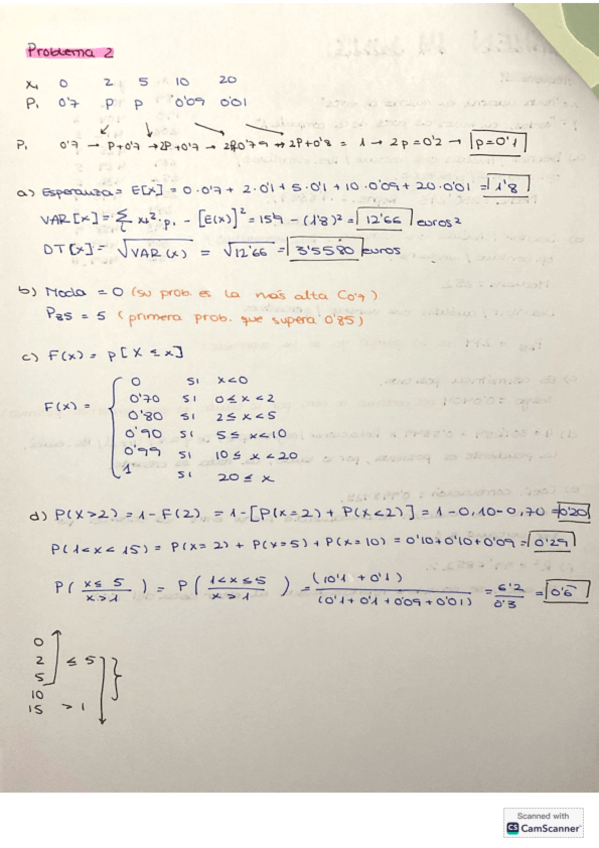 Problema 2
xi 0 2 5 10 20
Pi 0'7 P P 0'09 0'01
Pi 0'7 → P+0'7 → 2P+0'7 → 2P+0'79 → 2P+0'8 = 1 → 2p = 0'2 → p=0'1
a) Esperanza = E[x] = 0·0'7 + 2·0'1 + 5·0'1 + 10·0'09 + 20·0'01 = 1'8
VAR[x] = Σ xi²·pi - [E(x)]² = 15'9 - (1'8)² = 12'66 euros²
DT[x] = √VAR(x) = √12'66 = 3'5580 euros
b) Moda = 0 (su prob. es la más alta (0'7)
P85 = 5 (primera prob. que supera 0'85)
c) F(x) = P[X ≤ x]
F(x) = { 0 si x<0
0'70 si 0≤x<2
0'80 si 2≤x<5
0'90 si 5≤x<10
0'99 si 10≤x<20
1 si 20≤x
d) P(X>2) = 1-F(2) = 1-[P(x=2) + P(x<2)] = 1-0,10-0,70 = 0'20
P(1<x<15) = P(x=2) + P(x=5) + P(x=10) = 0'10+0'10+0'09 = 0'29
P( x≤5 / x>1 ) = P( 1<x≤5 / x>1 ) = (0'1 + 0'1) / (0'1+0'1+0'09+0'01) = 0'2 / 0'3 = 0'6
0
2 ≤ 5
5
10
15 > 1
Scanned with
CS CamScanner